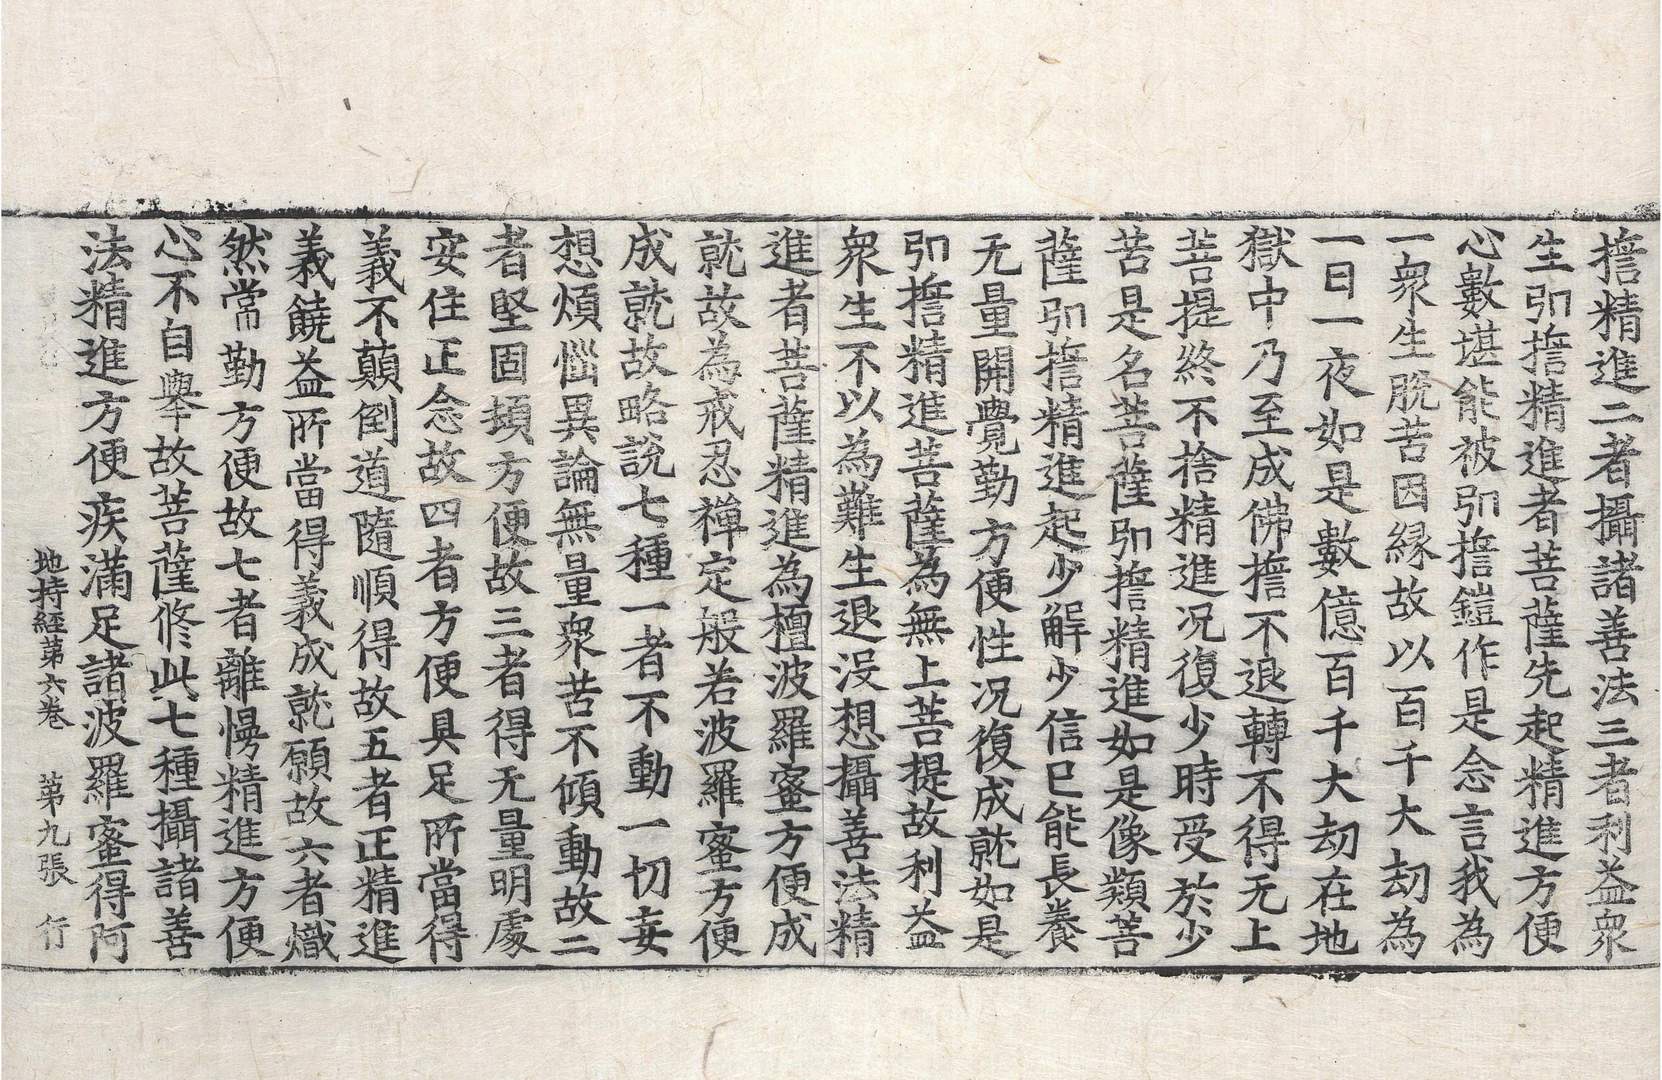 擔精進二者攝諸善法三者利益衆
生弘擔精進者菩薩先起精進方便
心數堪能被弘擔鎧作是念言我為
一衆生脫苦因縁故以百千大劫為
一日一夜如是數億百千大劫在地
獄中乃至成佛擔不退轉不得无上
菩提終不捨精進况復少時受於少
苦是名菩薩弘擔精進如是像類菩
薩弘擔精進起少解少信已能長養
无量開覺勤方便性况復成就如是
弘擔精進菩薩為無上菩提故利益
衆生不以為難生退沒想攝善法精
進者菩薩精進為檀波羅蜜方便成
就故為戒忍禪定般若波羅蜜方便
成就故略說七種一者不動一切妄
想煩惱異論無量衆苦不傾動故二
者堅固頓方便故三者得无量明處
安住正念故四者方便具足所當得
義不顛倒道隨順得故五者正精進
義饒益所當得義成就願故六者熾
然常勤方便故七者離慢精進方便
心不自擧故菩薩修此七種攝諸善
法精進方便疾滿足諸波羅蜜得阿
地持經第六卷 第九張 行